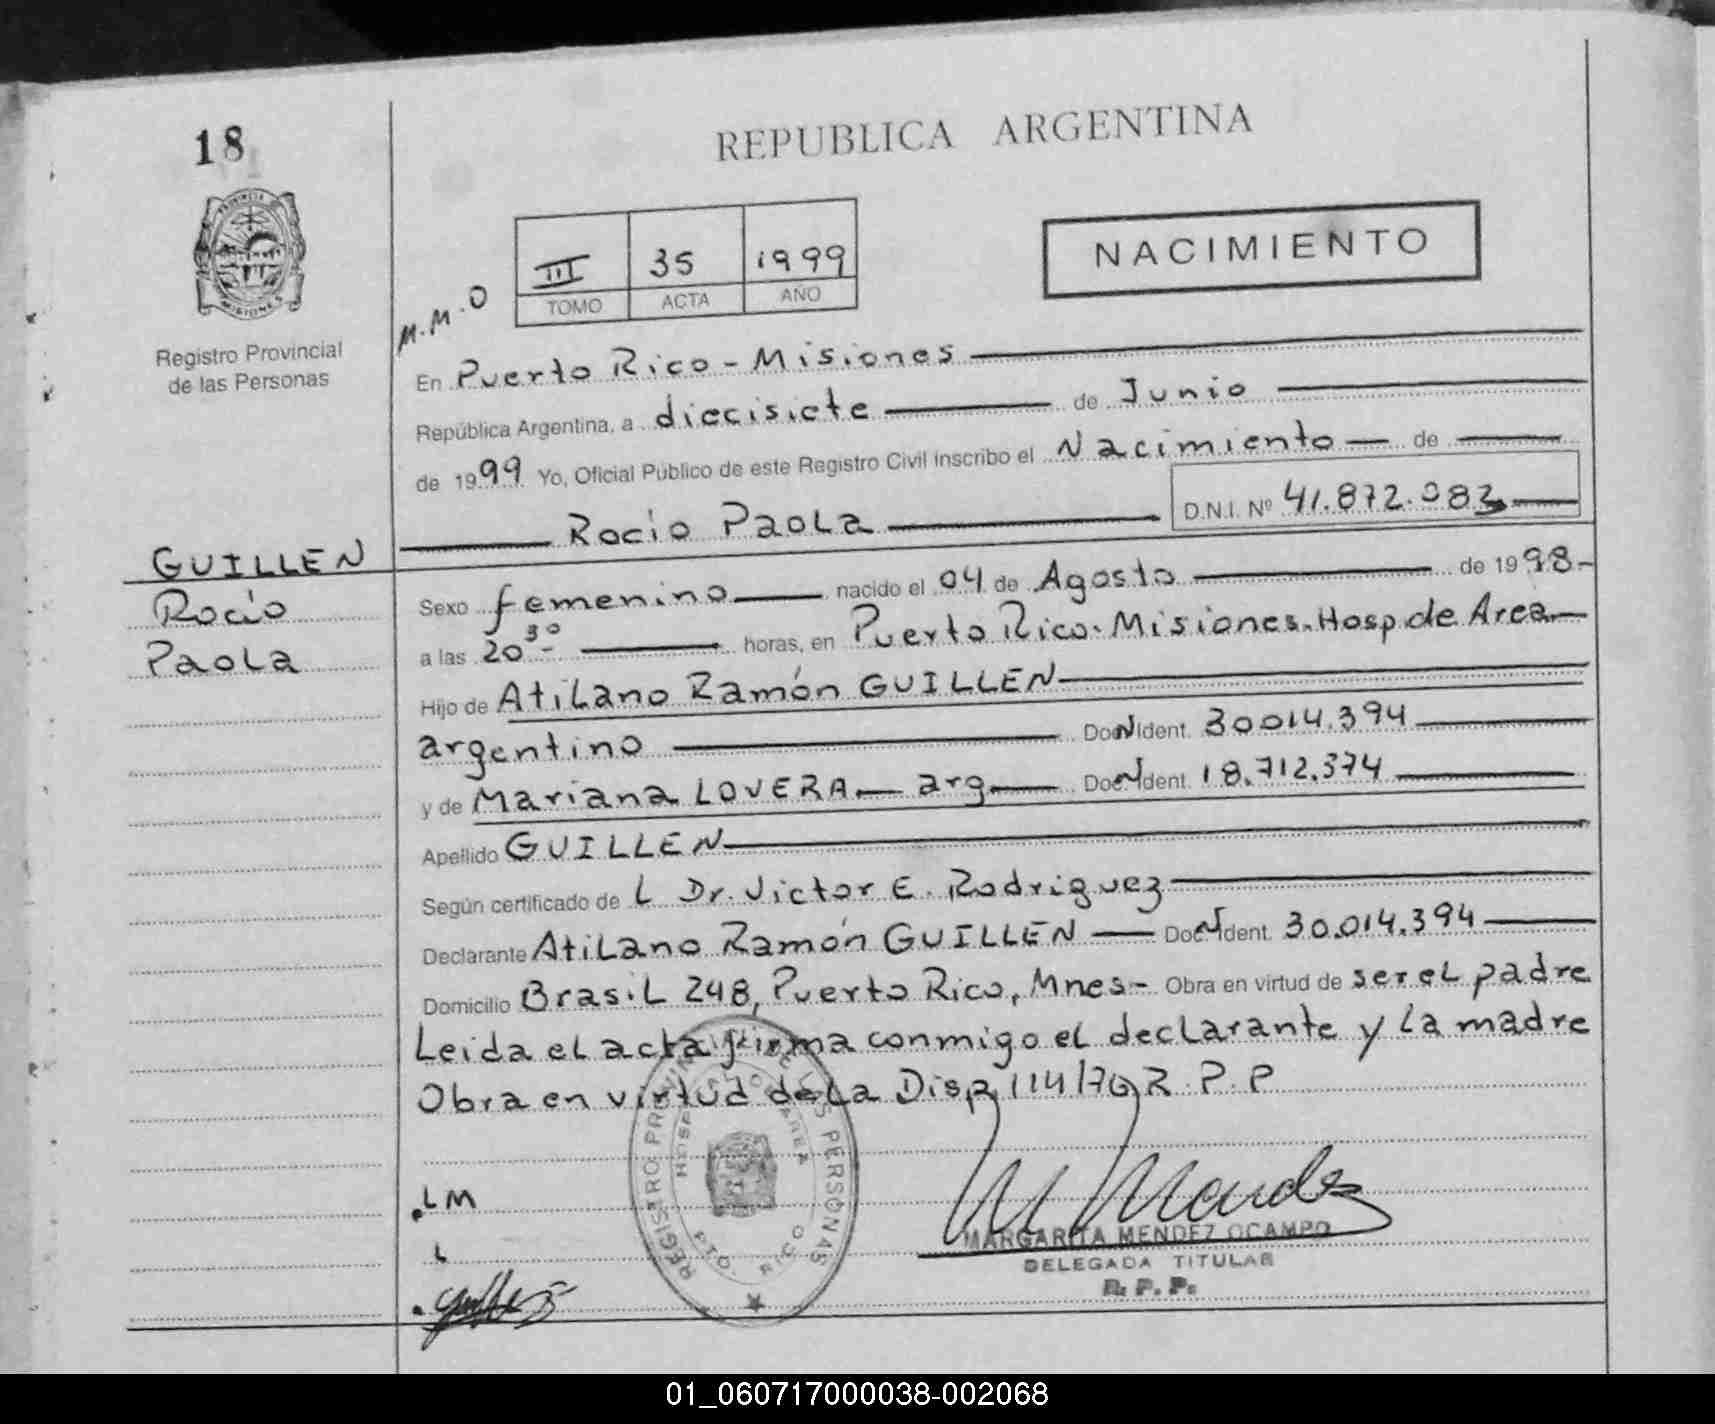 18
REPUBLICA ARGENTINA
PROVINCIA DE
MISIONES
Registro Provincial
de las Personas
III 35 1999
TOMO ACTA AÑO
NACIMIENTO
M.M.O
En Puerto Rico - Misiones
República Argentina, a diecisiete de Junio
de 1999 Yo, Oficial Público de este Registro Civil inscribo el Nacimiento de
Rocío Paola D.N.I. Nº 41.872.083
GUILLEN
Rocío
Paola
Sexo femenino nacido el 04 de Agosto de 1998-
a las 20 30 horas, en Puerto Rico. Misiones. Hosp. de Area
Hijo de Atilano Ramón GUILLEN
argentino Doc. Ident. 30.014.394
y de Mariana LOVERA arg Doc. Ident. 18.712.374
Apellido GUILLEN
Según certificado de L Dr. Victor E. Rodriguez
Declarante Atilano Ramón GUILLEN Doc. Ident. 30.014.394
Domicilio Brasil 248, Puerto Rico, Mnes- Obra en virtud de ser el padre
Leida el acta firma conmigo el declarante y la madre
Obra en virtud de la Disp. 114/76 R.P.P
LM
REGISTRO PROVINCIAL DE LAS PERSONAS
HOSPITAL DE AREA
PTO. RICO
M Mendez
MARGARITA MENDEZ OCAMPO
DELEGADA TITULAR
R. P. P.
01_060717000038-002068